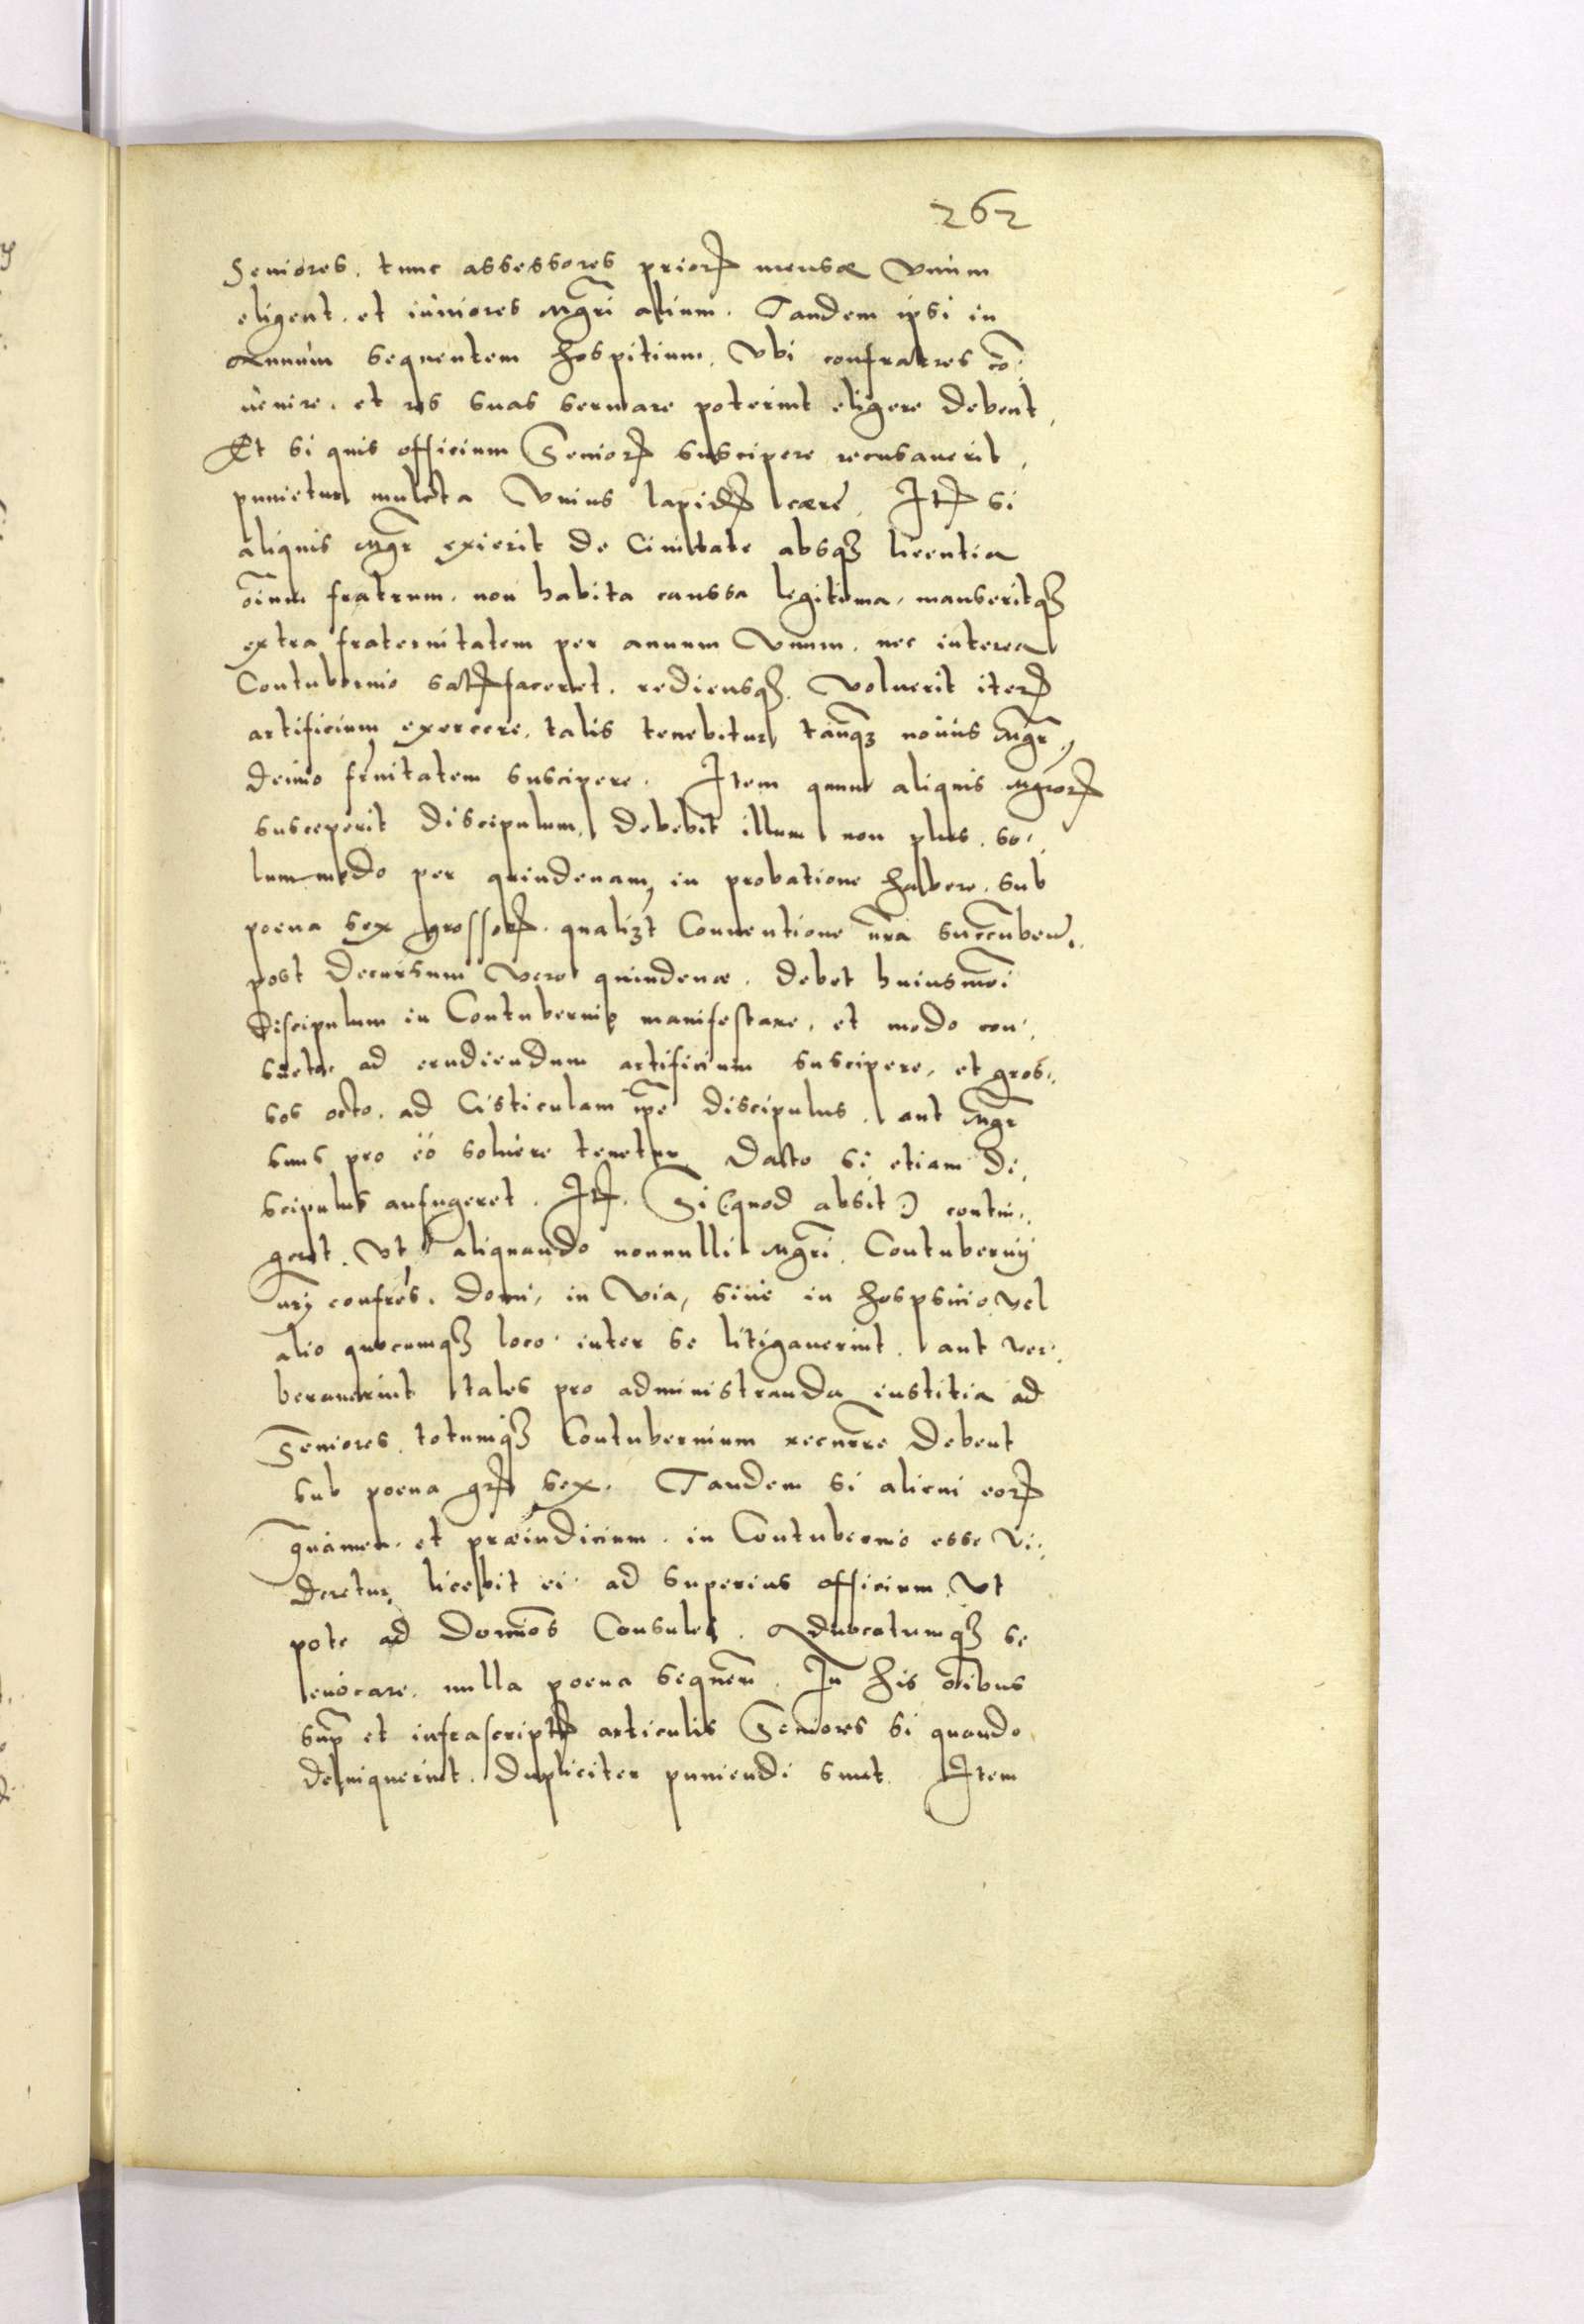 262
Seniores, tunc assessores prioꝝ mensæ vnum
eligent, et iuniores Mgr̃i alium. Tandem ipsi in
Annum sequentem hospitium, vbi confratres cõ:
uenire, et res suas seruare poterint eligere debent,
Et si quis officium Senioꝝ suscipere recusauerit,
punietur mulcta vnius lapidꝭ ceræ. Itꝭ si
aliquis Mgr̃ exierit de Ciuitate absqꝫ licentia
oĩum fratrum, non habita caussa legitima, manseritqꝫ
extra fraternitatem per annum vnum, nec interea
Contubernio satꝭfaceret, rediensqꝫ, voluerit iteꝝ
artificium exercere, talis tenebitur tanqꝫ nouus Mgr̃,
denuo fr̃nitatem suscipere. Item quum aliquis Mgroꝝ
susceperit discipulum, debebit illum non plus, so:
lummodo per quindenam, in probatione habere, sub
poena sex grossoꝝ, qualiꝫt Conuentione nr̃a succumben̄:
post decursum vero quindenæ, debet huiusmõi
discipulum in Contubernio manifestare, et modo con:
sueto ad erudiendum artificium suscipere, et gros:
sos octo, ad Cisticulam ip̃e discipulus, aut Mgr̃
suus pro eo soluere tenetur, Dato si etiam di:
scipulus aufugeret. Itꝭ. Si (quod absit) contin:
geret, vt aliquando nonnulli Mgr̃i, Contubernij
nr̃j confrẽs, domi, in via, siue in hospicio, vel
alio quocumqꝫ loco inter se litigauerint, aut ver:
berauerint tales pro administranda iustitia ad
Seniores, totumqꝫ Contubernium recurrere debent
sub poena grꝭ sex. Tandem si alicui eoꝝ
grauamen, et præiudicium, in Contubernio esse vi:
deretur, licebit ei ad superius officium, vt
pote ad Domĩos Consules, Aduocatumqꝫ se
euocare, nulla poena sequen̄. In his oĩbus
sup̃ et infrascriptꝭ articulis Seniores si quando
deliquerint, dupliciter puniendi sunt. Item